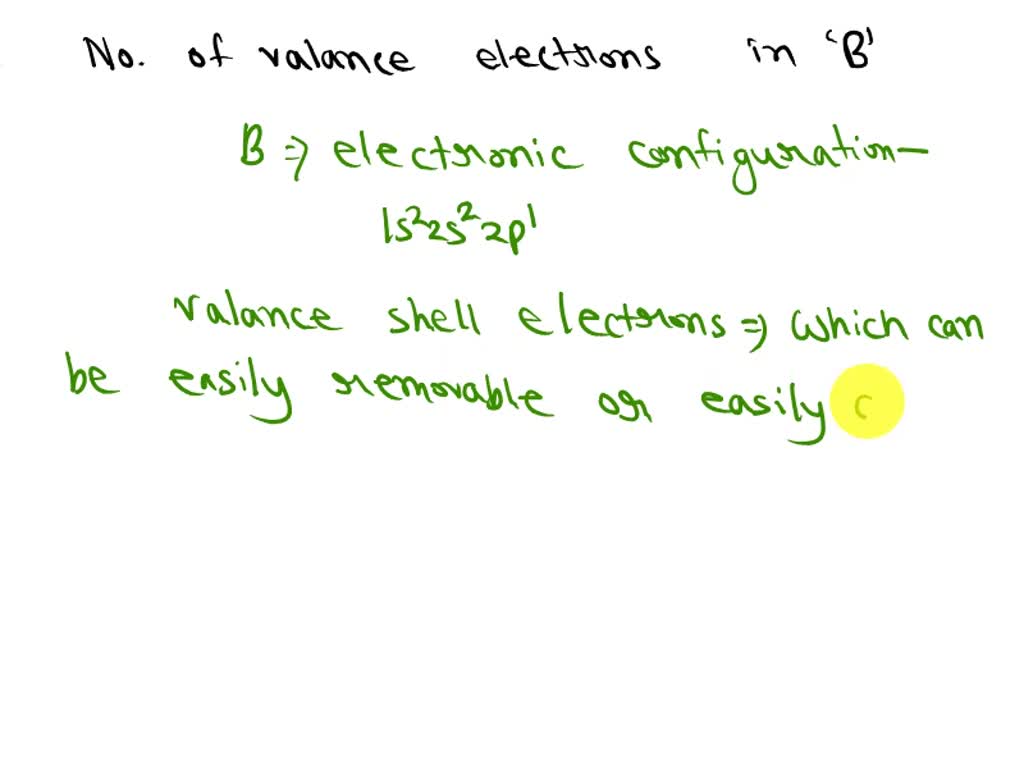 No. of valance electrons in 'B'
B ⇒ electronic configuration—
1s²2s²2p¹
valance shell electrons ⇒ which can
be easily removable or easily